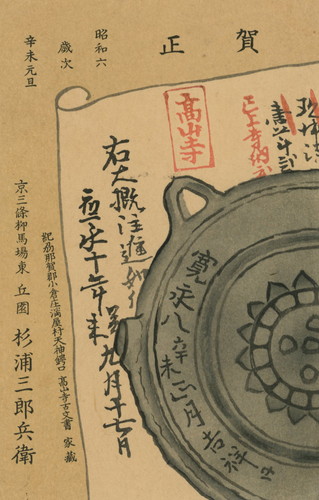 賀正
昭和六
歳次
辛未元旦
高山寺
右大概注進如
應永十年癸未九月十七日
寛永八辛未正月吉祥日
紀州那賀郡小倉庄満屋村天神鰐口 高山寺古文書 家蔵
京三條柳馬場東 丘園 杉浦三郎兵衛